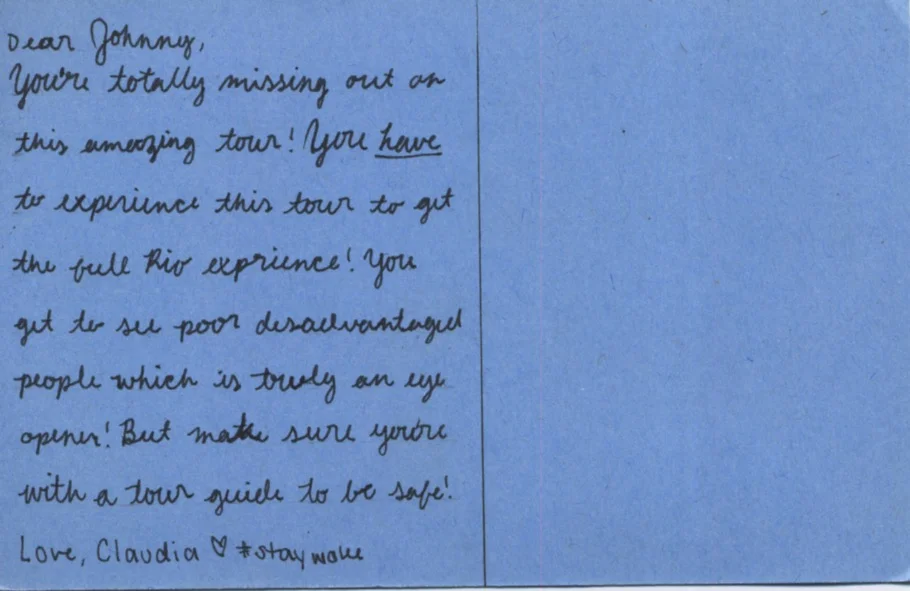 Dear Johnny,
You're totally missing out on
this amazing tour! You have
to experience this tour to get
the full Rio exprience! You
get to see poor disadvantaged
people which is truly an eye
opener! But make sure you're
with a tour guide to be safe!
Love, Claudia ♡ #staywoke